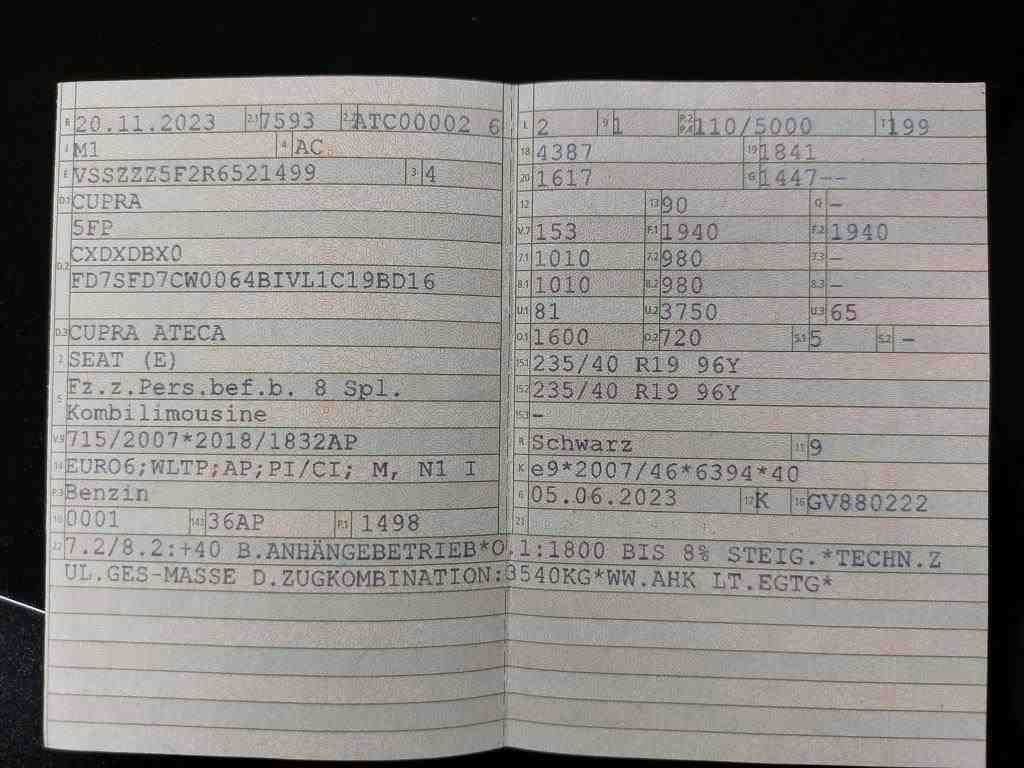 B 20.11.2023 2.1 7593 2.2 ATC00002 6
J M1 4 AC
E VSSZZZ5F2R6521499 3 4
D.1 CUPRA
5FP
D.2 CXDXDBX0
FD7SFD7CW0064BIVL1C19BD16
D.3 CUPRA ATECA
2 SEAT (E)
5 Fz.z.Pers.bef.b. 8 Spl.
Kombilimousine
V.9 715/2007*2018/1832AP
14 EURO6;WLTP;AP;PI/CI; M, N1 I
P.3 Benzin
10 0001 14.1 36AP P.1 1498
L 2 9 1 P.2 P.4 110/5000 T 199
18 4387 19 1841
20 1617 G 1447--
12 13 90 Q -
V.7 153 F.1 1940 F.2 1940
7.1 1010 7.2 980 7.3 -
8.1 1010 8.2 980 8.3 -
U.1 81 U.2 3750 U.3 65
O.1 1600 O.2 720 S.1 5 S.2 -
15.1 235/40 R19 96Y
15.2 235/40 R19 96Y
15.3 -
R Schwarz 11 9
K e9*2007/46*6394*40
6 05.06.2023 17 K 16 GV880222
21
22 7.2/8.2:+40 B.ANHÄNGEBETRIEB*O.1:1800 BIS 8% STEIG.*TECHN.Z
UL.GES-MASSE D.ZUGKOMBINATION:3540KG*WW.AHK LT.EGTG*